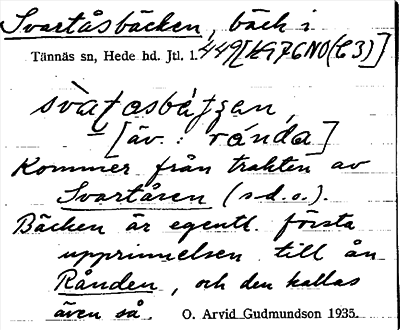 Svartåsbäcken, bäck i
Tännäs sn, Hede hd. Jtl. l. 449 [H9 76 NO (C3)]
[äv.: rånda]
Kommer från trakten av
Svartåsen (s.d.o.).
Bäcken är egentl. första
upprinnelsen till ån
Rånden, och den kallas
även så. O. Arvid Gudmundson 1935.